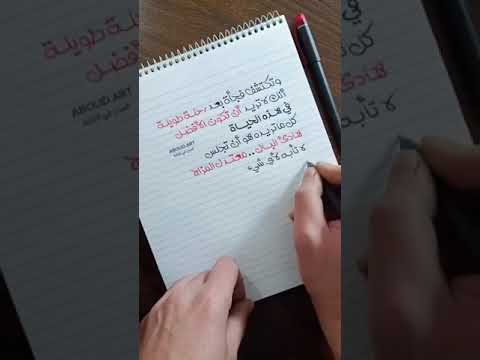 وتكتشف فجأة بعد رحلة طويلة
أنك لا تريد أن تكون الأفضل
في هذه الحياة
كل ماتريده هو أن تجلس
هادئ البال.. معتدل المزاج
لا تأبه لأي شيء
ABOUD.ART